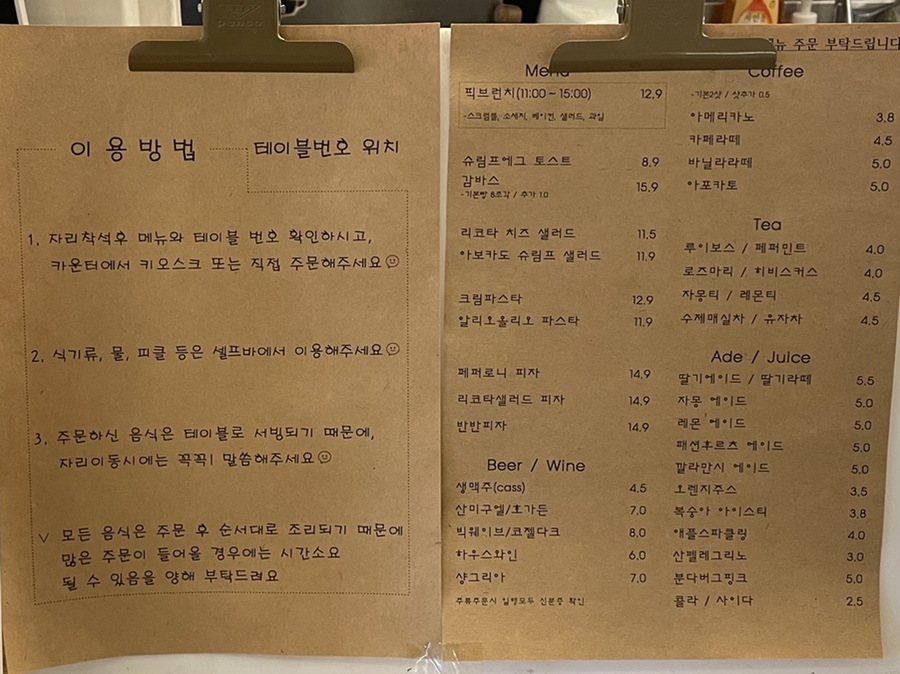 이용방법
테이블번호 위치
1. 자리착석후 메뉴와 테이블 번호 확인하시고,
카운터에서 키오스크 또는 직접 주문해주세요
2. 식기류, 물, 피클 등은 셀프바에서 이용해주세요
3. 주문하신 음식은 테이블로 서빙되기 때문에,
자리이동시에는 꼭꼭! 말씀해주세요
∨ 모든 음식은 주문 후 순서대로 조리되기 때문에
많은 주문이 들어올 경우에는 시간소요
될 수 있음을 양해 부탁드려요
주문 부탁드립니다
Menu
픽브런치(11:00 ~ 15:00) 12.9
-스크럼블, 소세지, 베이컨, 샐러드, 과일
슈림프에그 토스트 8.9
감바스 15.9
-기본빵 6조각 / 추가 1.0
리코타 치즈 샐러드 11.5
아보카도 슈림프 샐러드 11.9
크림파스타 12.9
알리오올리오 파스타 11.9
페퍼로니 피자 14.9
리코타샐러드 피자 14.9
반반피자 14.9
Beer / Wine
생맥주(cass) 4.5
산미구엘/호가든 7.0
빅웨이브/코젤다크 8.0
하우스와인 6.0
샹그리아 7.0
주류주문시 일행모두 신분증 확인
Coffee
-기본2샷 / 샷추가 0.5
아메리카노 3.8
카페라떼 4.5
바닐라라떼 5.0
아포카토 5.0
Tea
루이보스 / 페퍼민트 4.0
로즈마리 / 히비스커스 4.0
자몽티 / 레몬티 4.5
수제매실차 / 유자차 4.5
Ade / Juice
딸기에이드 / 딸기라떼 5.5
자몽 에이드 5.0
레몬 에이드 5.0
패션후르츠 에이드 5.0
깔라만시 에이드 5.0
오렌지주스 3.5
복숭아 아이스티 3.8
애플스파클링 4.0
산펠레그리노 3.0
분다버그핑크 5.0
콜라 / 사이다 2.5